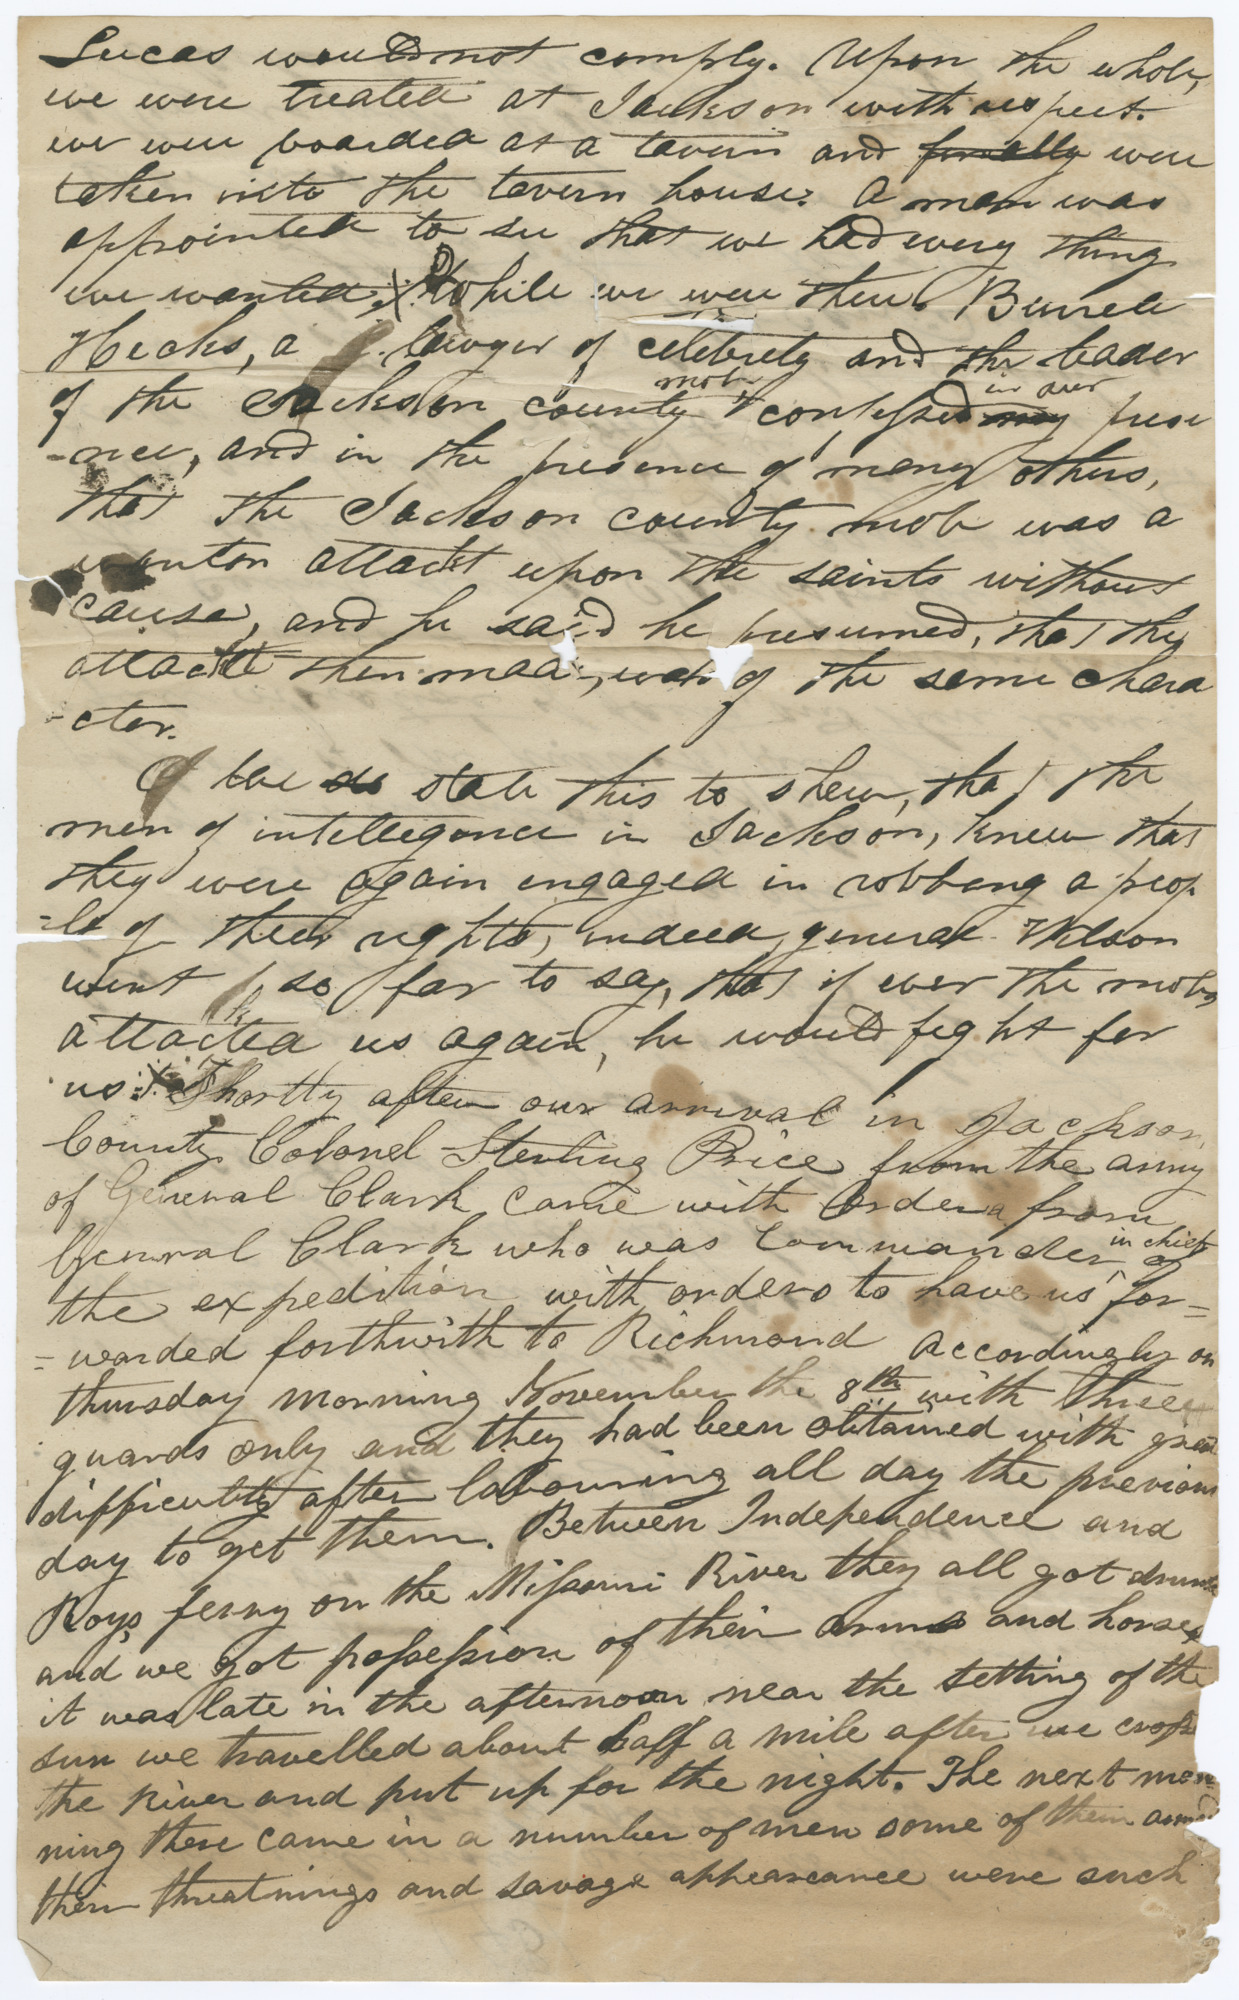 Lucas would not comply. Upon the whole,
we were treated at Jackson with respect.
we were boarded at a tavern and finally were
taken into the tavern house. A man was
appointed to see that we had every thing
we wanted, While we were there. Burrell
Hecks, a lawyer of celebrety and the leader
of the Jackson county mob, confessed in our prese
-nce, and in the presence of many others,
that the Jackson county mob was a
wanton attackt upon the saints without
cause, and he said he presumed, that the
attackt then made, was of the same chara
-cter.
We do state this to shew, that the
men of intellegence in Jackson, knew that
they were again engaged in robbang a peop
-le of their rights, indeed, general Wilson
went so far to say, that if ever the mob
attackted us again, he would fight for
us. Shortly after our arrival in Jackson,
County Colonel Sterling Price from the army
of General Clark came with orders from
General Clark who was commander in chief of
the expedition with orders to have us for=
=warded forthwith to Richmond accordingly on
thursday morning November the 8th with three
guards only and they had been obtained with great
difficulty after labouring all day the previous
day to get them. Between Independence and
Roys ferry on the Missouri River they all got drunk
and we got possession of their arms and horses
it was late in the afternoon near the setting of the
sun we travelled about half a mile after we crossed
the River and put up for the night. The next mor
ning there came in a number of men some of them armed
their threatnings and savage appearance were such